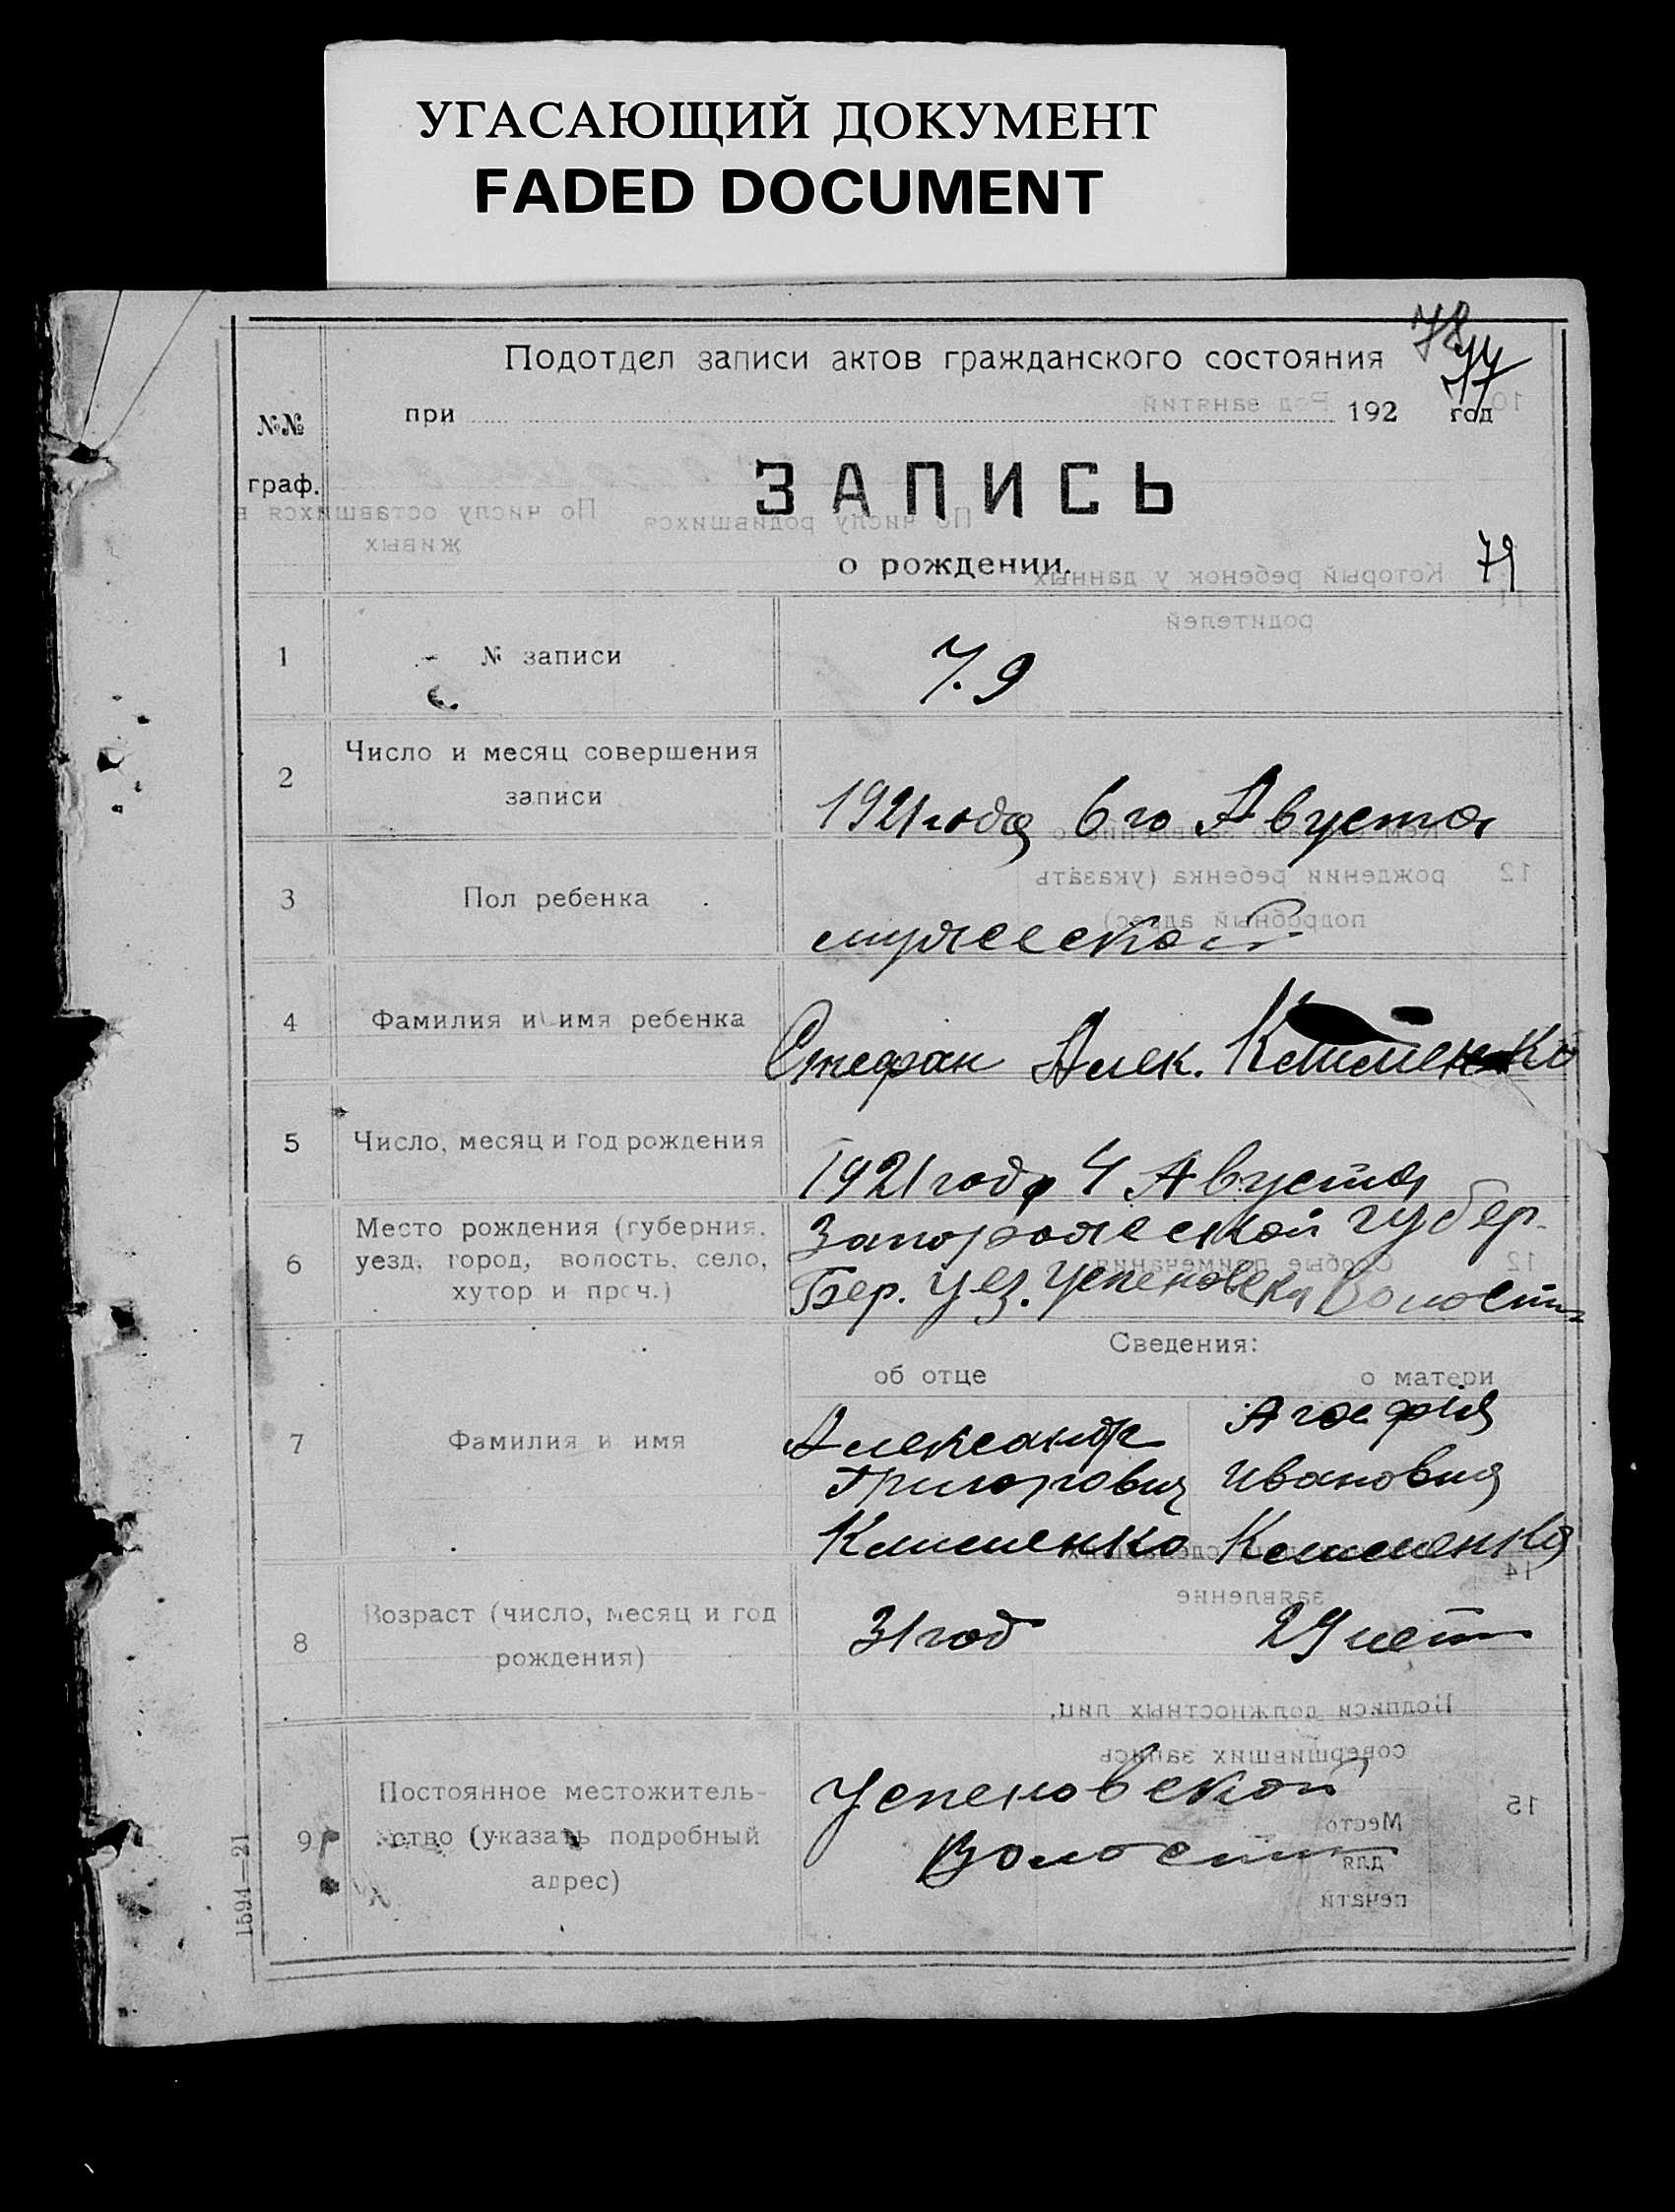 УГАСАЮЩИЙ ДОКУМЕНТ
FADED DOCUMENT
78
77
Подотдел записи актов гражданского состояния
при 192 год
№№
граф.
ЗАПИСЬ
о рождении.
79
1 № записи 79
2 Число и месяц совершения
записи
1921 года 6 го Августа
3 Пол ребенка
мужеской
4 Фамилия и имя ребенка
Стефан Алек. Клименко
5 Число, месяц и год рождения
1921 года 4 Августа
6 Место рождения (губерния,
уезд, город, волость, село,
хутор и проч.)
Запорожеской губер.
Бер. уез. Успеновска Волости
Сведения:
об отце о матери
7 Фамилия и имя
Александр Агафія
Григорович Ивановна
Клименко Клименка
8 Возраст (число, месяц и год
рождения)
31 год 29 лет
9 Постоянное местожитель-
ство (указать подробный
адрес)
Успеновской
Волости
1591—21